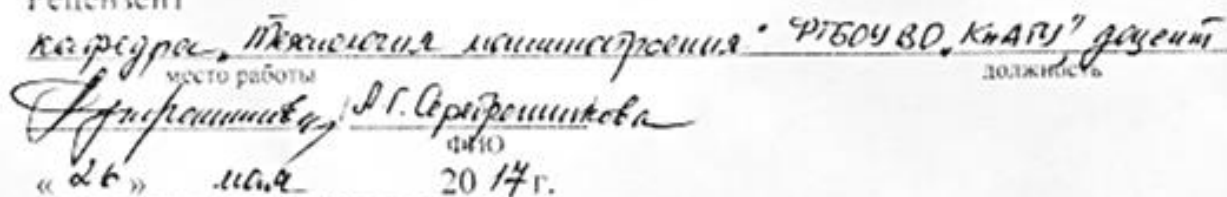 Рецензент
кафедра „Технология машиностроения" ФГБОУ ВО „КнАГУ" доцент
место работы должность
А.Г. Серебренникова
ФИО
« 26 » мая 20 17 г.